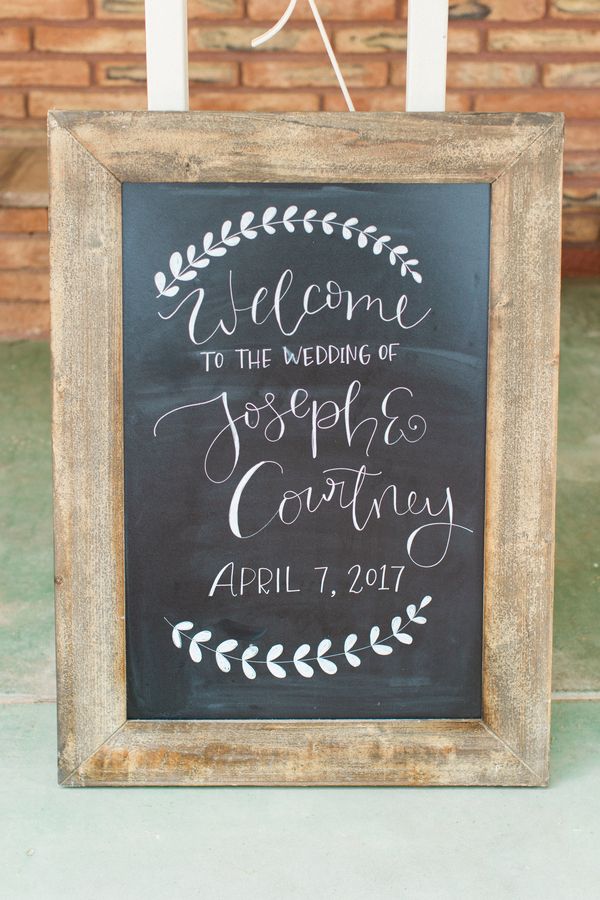 Welcome
TO THE WEDDING OF
Joseph &
Courtney
APRIL 7, 2017